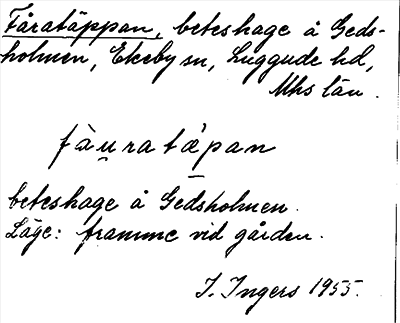 Fåratäppan, beteshage å Geds-
holmen, Ekeby sn, Luggude hd,
Mhs län.
fàu̯ratǽpan
beteshage å Gedsholmen.
Läge: framme vid gården.
I. Ingers 1955.